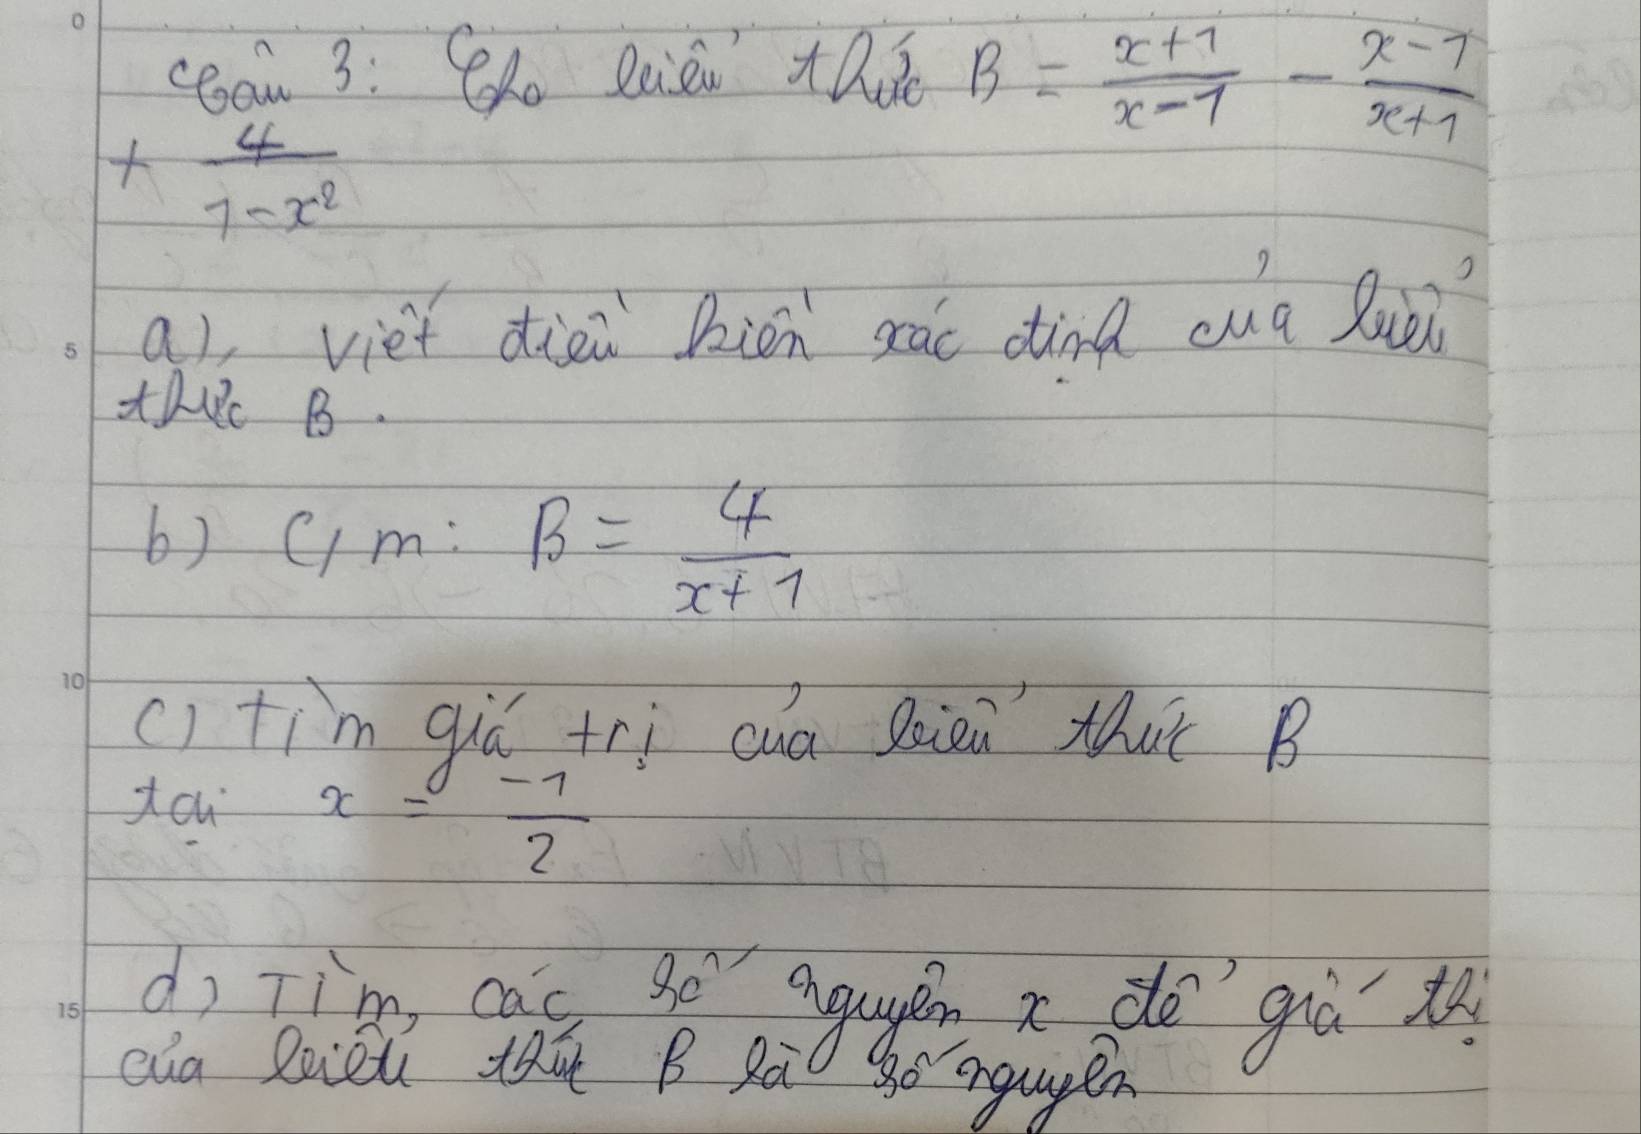 0
Câu 3: Cho biểu thức B = \frac{x+1}{x-1} - \frac{x-1}{x+1}
+ \frac{4}{1-x²}
a), viết điều kiện xác định của biểu
5
thức B.
b) C/m: B = \frac{4}{x+1}
10
c) Tìm giá trị của biểu thức B
tại x = \frac{-1}{2}
d) Tìm, các số nguyên x để giá trị
15
của biểu thức B là số nguyên